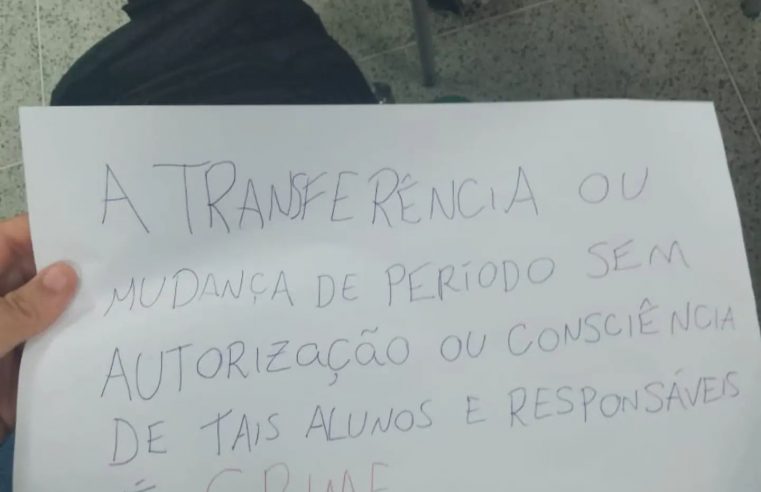 A TRANSFERÊNCIA OU
MUDANÇA DE PERÍODO SEM
AUTORIZAÇÃO OU CONSCIÊNCIA
DE TAIS ALUNOS E RESPONSÁVEIS
É CRIME